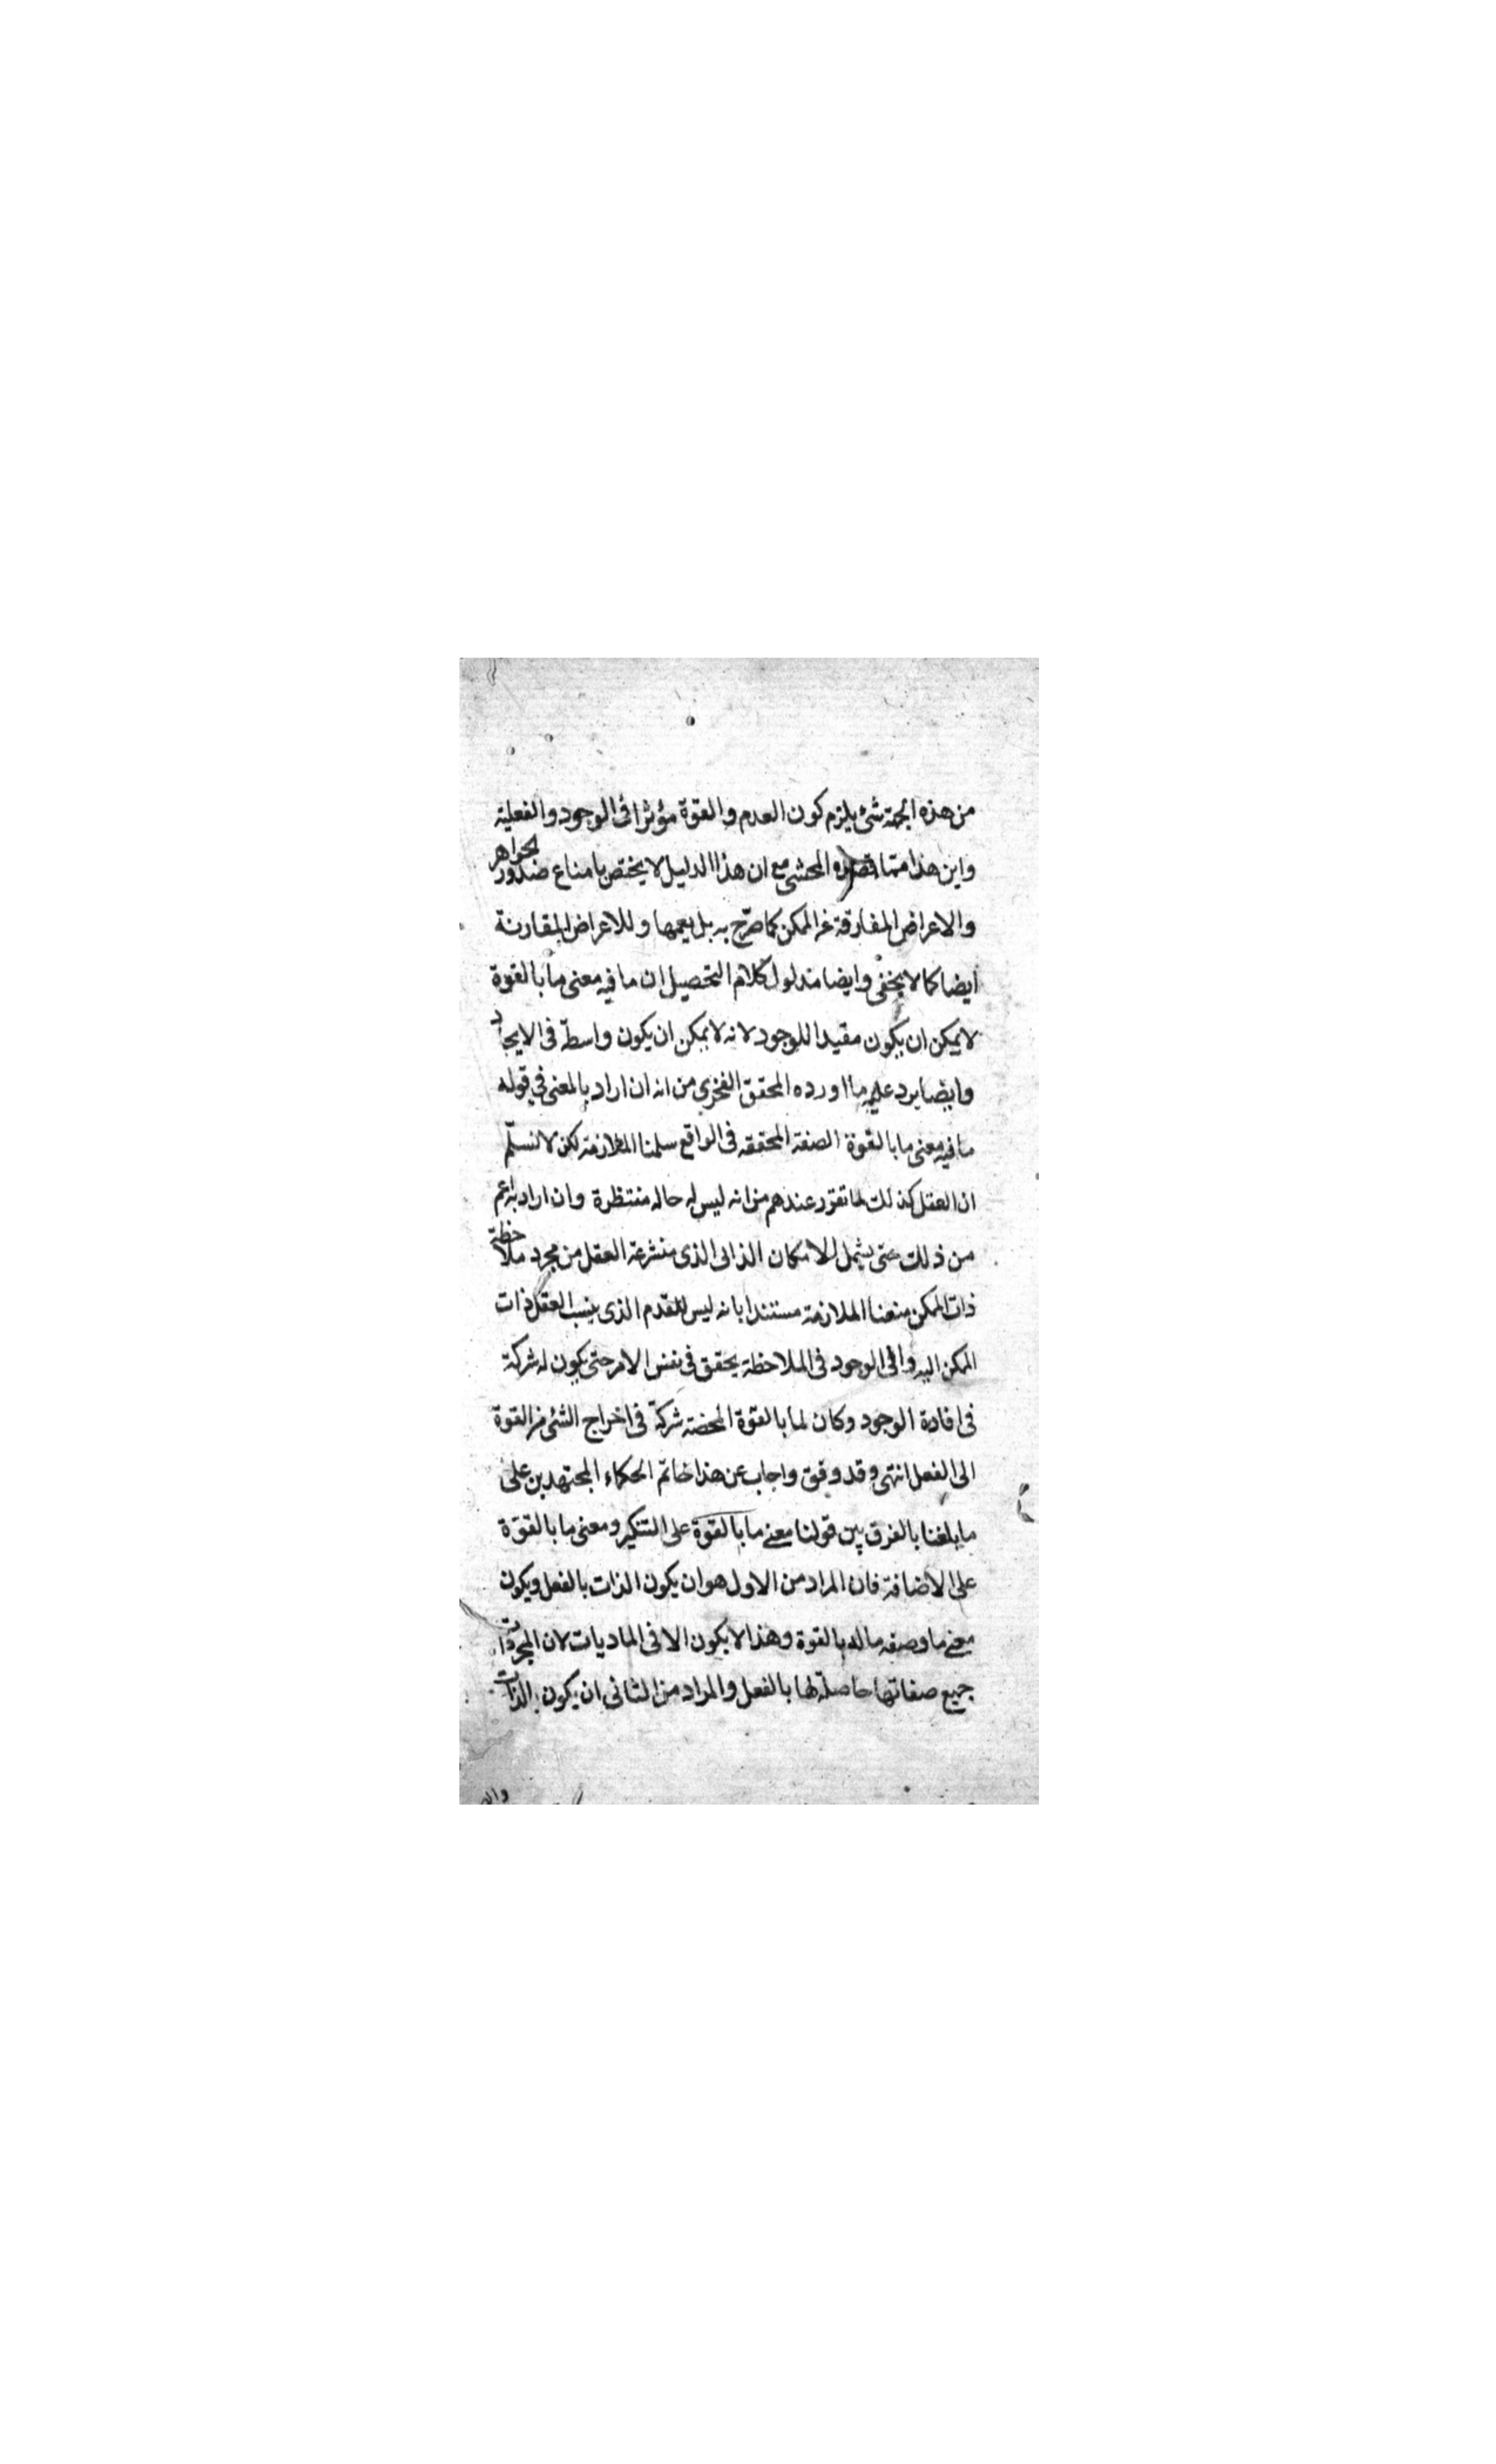 من هذه الجهة شئ يلزم كون العدم والقوة مؤثرا فى الوجود والفعلية
واين هذا مما المحشى مع ان هذا الدليل لا يختص بامناع صدور الجواهر
والاعراض المفارقة عن الممكن كما صرّح به بل يعمها وللاعراض المقارنة
ايضا كما لا يخفى وايضا مدلول كلام التحصيل ان ما فيه معنى ما بالقوة
لا يمكن ان يكون مقيدا للوجود لانه لا يمكن ان يكون واسطة فى الايجاد
وايضا يرد عليه ما اورده المحقق الفخرى من انه ان اراد بالمعنى فى قوله
ما فيه معنى ما بالقوة الصفة المحققه فى الواقع سلمنا الملازمة لكن لا نسلّم
ان العقل كذلك لما تقرر عندهم من انه ليس له حاله منتظرة وان اراد به اعم
من ذلك حتى يشمل الامكان الذاتى الذى منشرعه العقل من مجرد ملاحظة
ذات الممكن منعنا الملازمة مستندا بانه ليس للعدم الذى ينسب العقل ذات
الممكن اليه والى الوجود فى الملاحظة يحقق فى نفس الامر حتى يكون له شركة
فى افادة الوجود وكان لما بالقوة المحضة شركة فى اخراج الشئ من القوة
الى الفعل انتهى وقد وفق واجاب عن هذا خاتم الحكماء المجتهدين على
ما بلغنا بالفرق بين قولنا معنى ما بالقوة على التنكير ومعنى ما بالقوّة
على الاضافة فان المراد من الاول هو ان يكون الذات بالفعل ويكون
معنى ما وصفه ما له بالقوة وهذا لا يكون الا فى الماديات لان المجردات
جميع صفاتها حاصلة لها بالفعل والمراد من الثانى ان يكون الذات